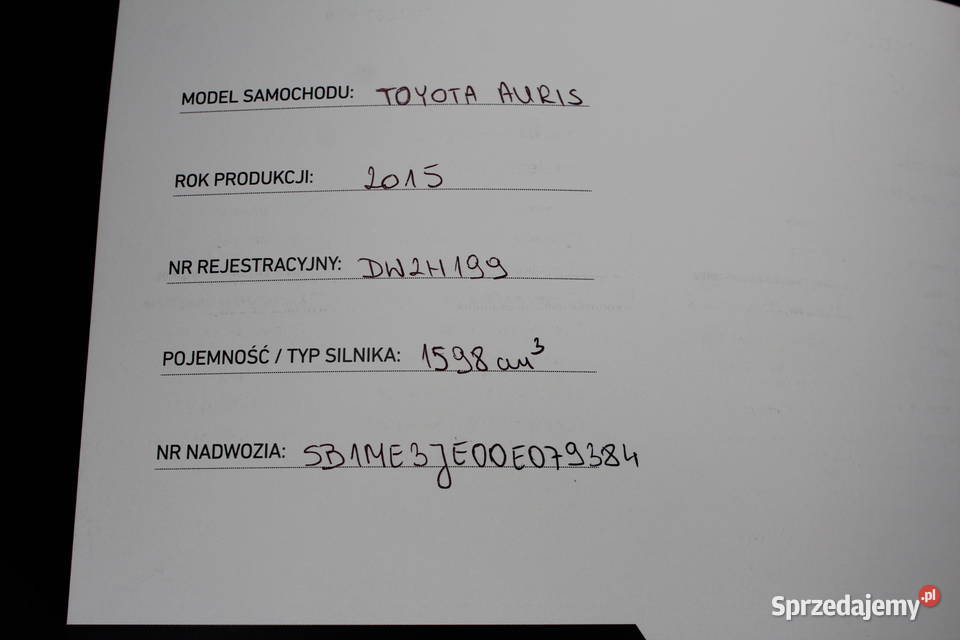 MODEL SAMOCHODU: TOYOTA AURIS
ROK PRODUKCJI: 2015
NR REJESTRACYJNY: DW2H199
POJEMNOŚĆ / TYP SILNIKA: 1598 cm³
NR NADWOZIA: SB1ME3JE00E079384
Sprzedajemy.pl